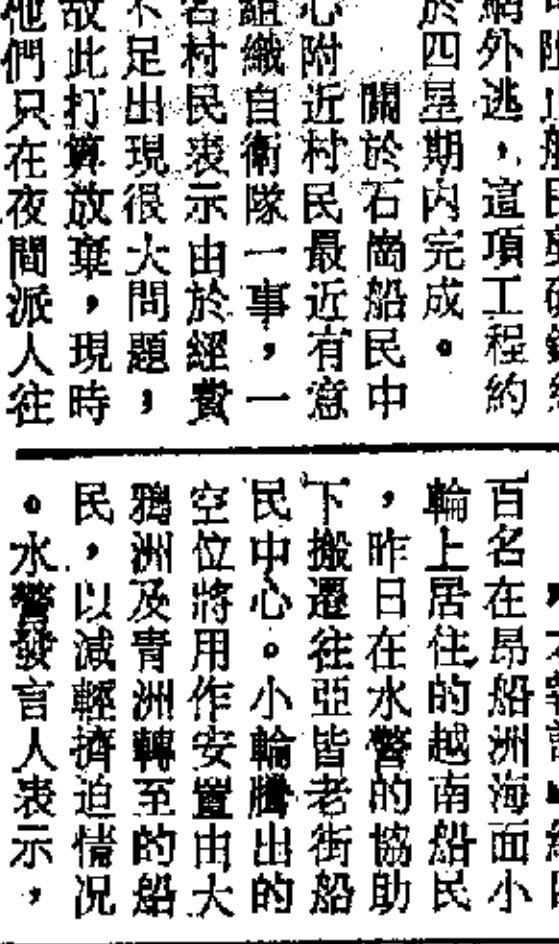 網外逃,這項工程約
於四星期內完成。
關於石崗船民中
心附近村民最近有意
組織自衛隊一事,一
名村民表示由於經費
不足出現很大問題,
故此打算放棄,現時
他們只在夜間派人往
百名在昂船洲海面小
輪上居住的越南船民
,昨日在水警的協助
下搬遷往亞皆老街船
民中心。小輪騰出的
空位將用作安置由大
鴉洲及青洲轉至的船
民,以減輕擠迫情況
。水警發言人表示,